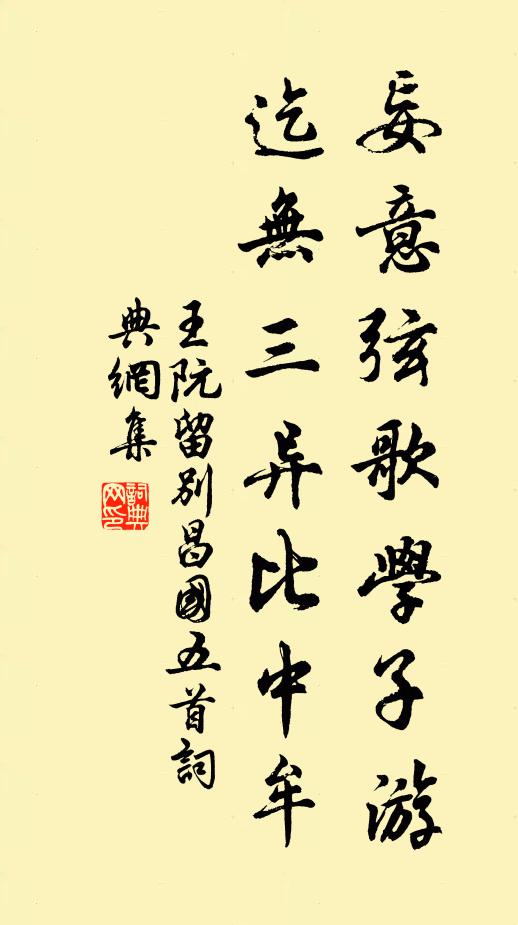 妄意弦歌學子游
迄無三异比中牟
王阮留別昌國五首詞
典網集
詞典网印